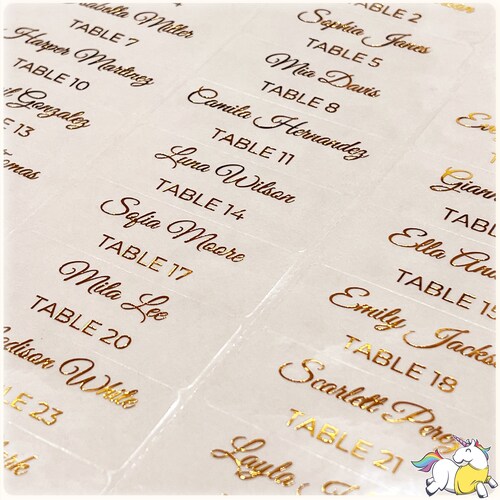 Miller
TABLE 7
Harper Martinez
TABLE 10
Gonzalez
13
TABLE 2
Sophia Jones
TABLE 5
Mia Davis
TABLE 8
Camila Hernandez
TABLE 11
Luna Wilson
TABLE 14
Sofia Moore
TABLE 17
Mila Lee
TABLE 20
White
23
Ella
TABLE
Emily Jackson
TABLE 18
Scarlett Perez
TABLE 21
Layla